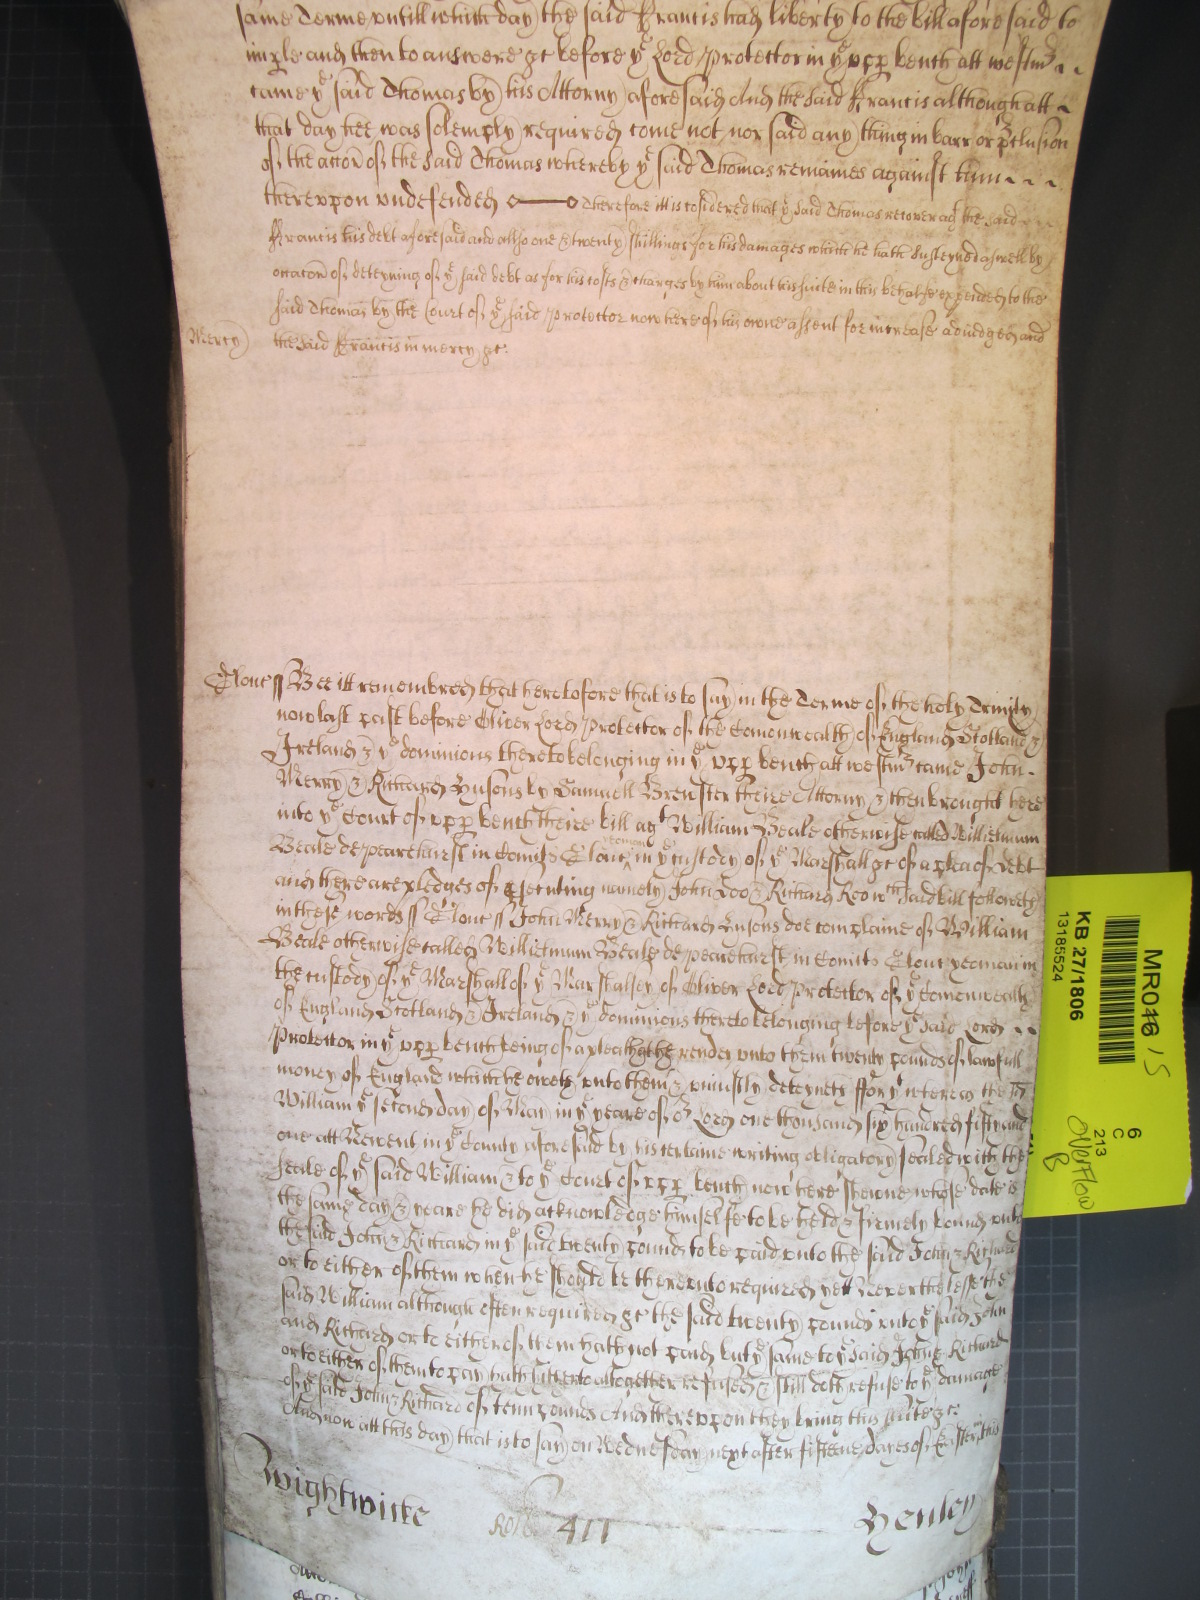 same Terme untill which day the said Francis had liberty to the bill aforesaid to
imple and then to answere &c before ye Lord Protector in ye upp bench att Westmr
came ye said Thomas by his Attorny aforesaid And the said Francis although att
that day hee was solemply required come not nor said any thing in barr or pclusion
of the accon of the said Thomas whereby ye said Thomas remaines against him
thereupon undefended Therefore itt is cosidered that ye said Thomas recover agt the said
Francis his debt aforesaid and allso one & twenty shillings for his damages which he hath susteyned aswell by
occacon of deteyning of ye said debt as for his costs & charges by him about his suite in this behalfe expended to the
said Thomas by the Court of ye said Protector now here of his owne assent for increase adiudged and
Mercy the said Francis in mercy &c
Glouc ss Bee itt remembred that heretofore that is to say in the Terme of the holy Trinity
now last past before Oliver Lord Protector of the Comonwealth of England Scotland &
Ireland & ye dominions thereto belonging in ye upp bench att westmr came John
Merry & Richard Lysons by Samuell Brewster theire Attorny & then brought here
into ye Court of upp bench theire bill agt William Beale otherwise called Willielmum
Beale de pearchurst in Comit Glouc yeoman in ye custody of ye Marshall &c of a plea of debt
and there are pledges of psecuting namely John Doo & Richard Roo wch said bill followeth
in these words ss Glouc ss John Merry & Richard Lysons doe complaine of William
Beale otherwise called Willielmum Beale de pearchurst in Comit Glouc yeoman in
the custody of ye Marshall of ye Marshalsey of Oliver Lord Protector of ye Comonwealth
of England Scotland & Ireland & ye dominions thereto belonging before ye said Lord
Protector in ye upp bench being of a plea that he render unto them twenty pounds of lawfull
money of England which he oweth unto them & uniustly deteyneth ffor yt whereas the sd
William ye second day of May in ye yeare of or Lord one thousand six hundred fifty and
one att Newent in ye County aforesaid by his certaine writing obligatory sealed with the
seale of ye said William & to ye Court of upp bench now here shewne whose date is
the same day & yeare he did acknowledge himselfe to be held & firmely bound unto
the said John & Richard in ye said twenty pounds to be paid unto the said John & Richard
or to either of them when he should be thereunto required yett Neverthelesse the
said William although often required &c the said twenty pounds unto ye said John
and Richard or to either of them hath not paid but ye same to ye said John & Richard
or to either of them to pay hath hitherto altogether refused & still doth refuse to ye damage
of ye said John & Richard of tenn pounds And thereupon they bring this suite &c
And now att this day that is to say on Wednesday next after fifteene dayes of Easter in this
Wightwicke Roll 411 Henley
MR046 / S
KB 27/1806
13185524
6
C
213
OVERFLOW
B